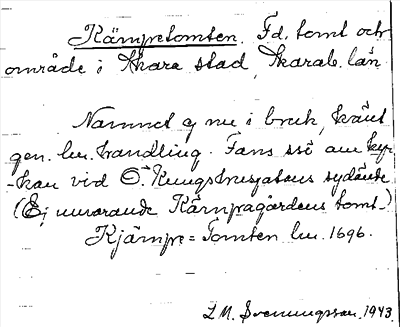 Kämpetomten. Fd. tomt och
område i Skara stad, Skarab. län
Namnet ej nu i bruk, känt
gen. hu. handling. Fans sö om kyr-
-kan vid Ö. Kungshusgatans sydände
(Ej nuvarande Kämpagårdens tomt.)
Kjämpe=Tomten hu. 1696.
L M. Svenungsson. 1943.